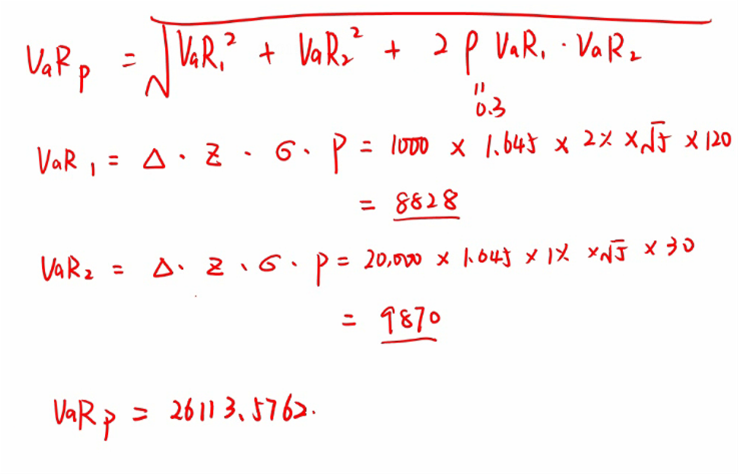 VaRp = √(VaR₁² + VaR₂² + 2 ρ VaR₁ · VaR₂)
"
0.3
VaR₁ = Δ · Z · σ · P = 1000 × 1.645 × 2% × √5 × 120
= 8828
VaR₂ = Δ · Z · σ · P = 20,000 × 1.645 × 1% × √5 × 30
= 9870
VaRp = 26113.5762.